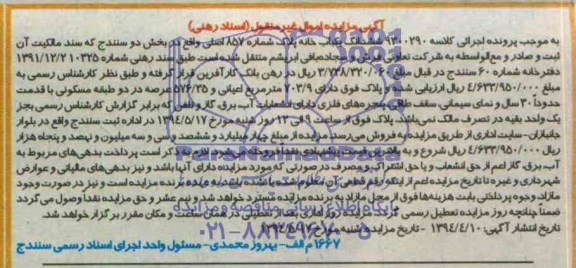 آگهی مزایده اموال غیر منقول (اسناد رهنی)
به موجب پرونده اجرائی کلاسه ۹۳۰۰۲۹۰ ششدانگ یکباب خانه پلاک شماره ۸۵۷ اصلی واقع در بخش دو سنندج که سند مالکیت آن
ثبت و صادر و مع‌الواسطه به شرکت تعاونی فرش و سجاده‌بافی ابریشم منتقل شده است طبق سند رهنی شماره ۱۰۳۲۵-۱۳۹۱/۱۲/۲
دفترخانه شماره ۶۰ سنندج در قبال مبلغ ۳/۷۳۸/۳۲۰/۰۶۸ ریال در رهن بانک کارآفرین قرار گرفته و طبق نظر کارشناس رسمی به
مبلغ ۴/۶۳۳/۹۵۰/۰۰۰ ریال ارزیابی شده و پلاک فوق دارای ۱۰۳/۹ مترمربع اعیانی و ۵۷۶/۳۵ عرصه در دو طبقه مسکونی با قدمت
حدوداً ۳۰ سال و نمای سیمانی سقف طاق پنجره‌های فلزی دارای انشعابات آب برق گاز و تلفن که برابر گزارش کارشناس رسمی بجز
یک واحد بقیه در تصرف مالک نمی‌باشد. پلاک فوق از ساعت ۹ الی ۱۲ روز شنبه مورخ ۱۳۹۴/۵/۱۷ در اداره ثبت سنندج واقع در بلوار
جانبازان-سایت اداری از طریق مزایده به فروش می‌رسد. مزایده از مبلغ چهار میلیارد و ششصد و سی و سه میلیون و نهصد و پنجاه هزار
ریال ۴/۶۳۳/۹۵۰/۰۰۰ ریال شروع و به بالاترین قیمت پیشنهادی نقداً فروخته می‌شود. لازم به ذکر است پرداخت بدهی‌های مربوط به
آب، برق، گاز اعم از حق انشعاب و یا حق اشتراک و مصرف در صورتی که مورد مزایده دارای آنها باشد و نیز بدهی‌های مالیاتی و عوارض
شهرداری و غیره تا تاریخ مزایده اعم از اینکه رقم قطعی آن معلوم شده یا نشده باشد به عهده برنده مزایده است و نیز در صورت وجود
مازاد، وجوه پرداختی بابت هزینه‌ها فوق از محل مازاد به برنده مزایده مسترد خواهد شد و نیم عشر و حق مزایده نقداً وصول می‌گردد
ضمناً چنانچه روز مزایده تعطیل رسمی گردد، مزایده روز اداری بعد از تعطیلی در همان ساعت و مکان مقرر برگزار خواهد شد.
تاریخ انتشار آگهی: ۱۳۹۴/۴/۱۰ - تاریخ مزایده: شنبه مورخ ۱۳۹۴/۵/۱۷
۱۶۶۷ م الف- بهروز محمدی- مسئول واحد اجرای اسناد رسمی سنندج
ParsNamadData
پایگاه اطلاع رسانی مناقصه و مزایده
۰۲۱-۸۸۳۴۹۶۷۰-۵